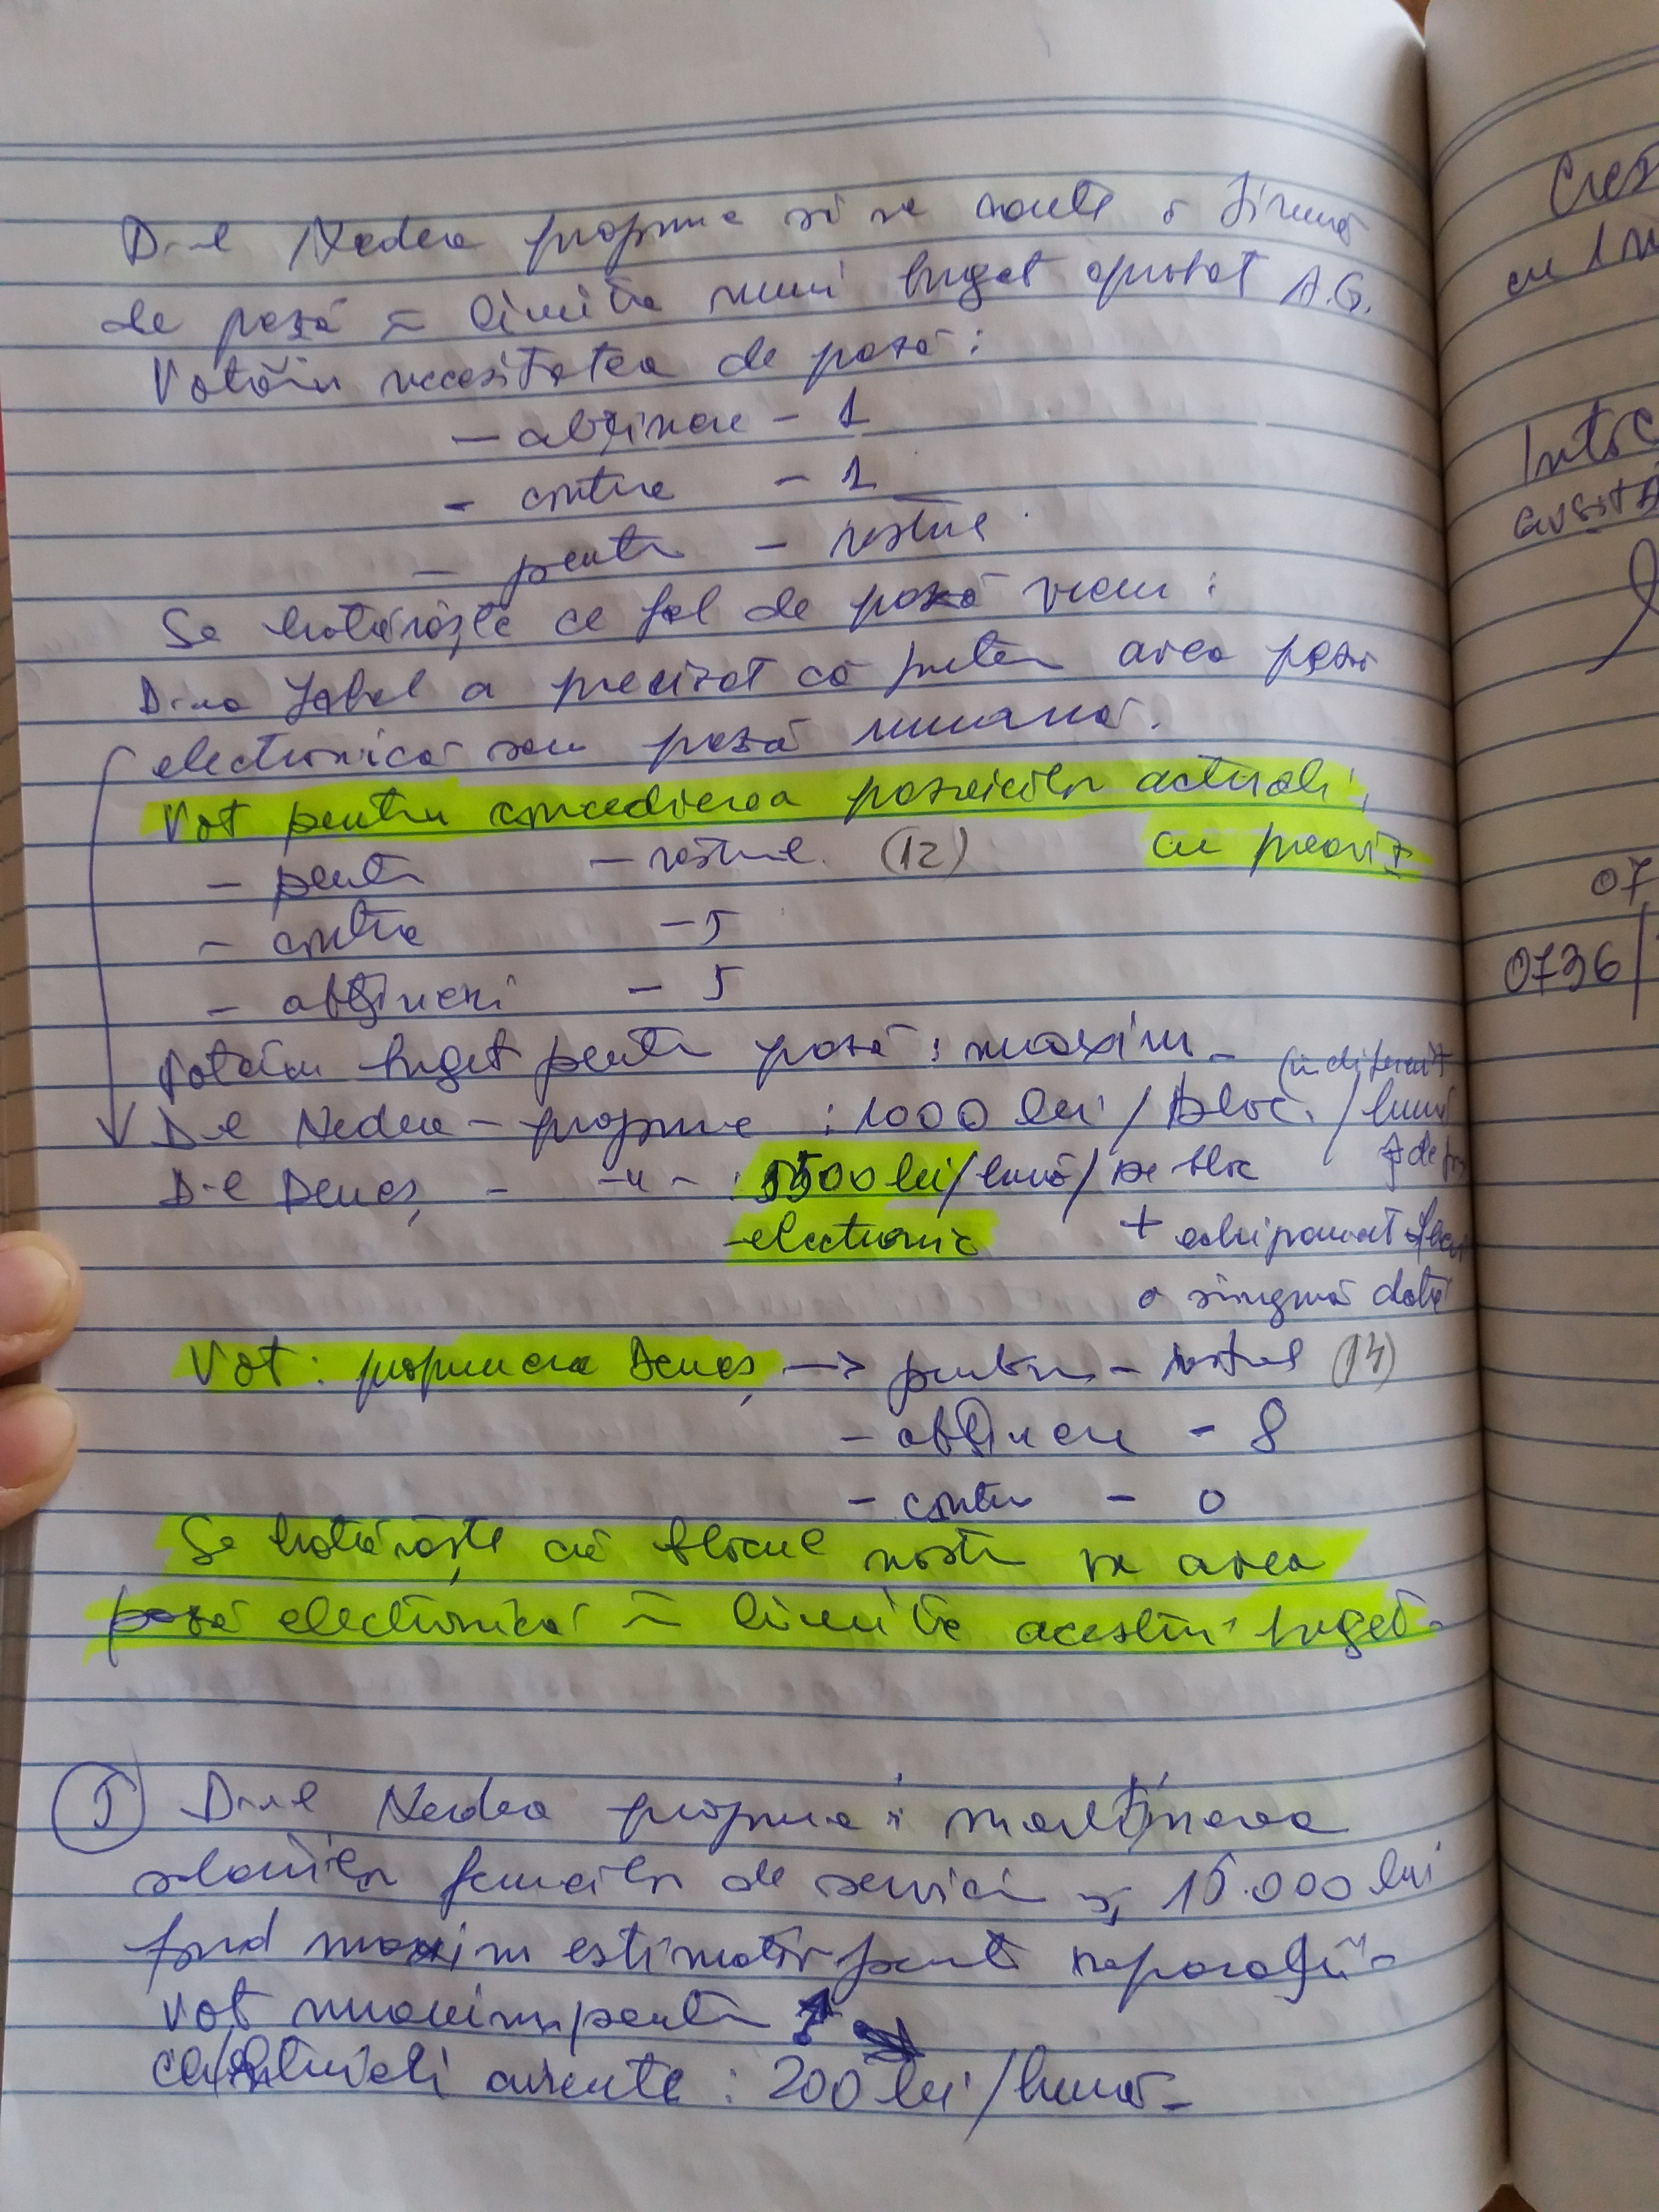 D-l Nedea propune să se caute o firmă
de pază în limita unui buget aprobat A.G.
Votăm necesitatea de pază:
— abținere – 1
– contra – 1
– pentru – restul
Se hotărăște ce fel de pază vrem:
D-na a precizat că putem avea pază
electronică sau pază umană.
Vot pentru concedierea paznicilor actuali,
cu preaviz
– pentru – restul (12)
– contra – 5
– abțineri – 5
Votăm buget pentru pază: maxim –
(indiferent
D-l Nedea – propune : 1000 lei/bloc/lună
D-l Deneș – –"– : 500 lei/lună/pe bloc
– electronic + echipament
o singură dată
Vot: propunerea Deneș —> pentru – restul (14)
– abținere – 8
– contra – 0
Se hotărăște că blocul nostru va avea
pază electronică în limita acestui buget.
5 D-l Nedea propune: menținerea
salariilor femeilor de serviciu și 15.000 lei
fond maxim estimativ pentru reparații –
vot unanim pentru
cheltuieli curente : 200 lei/lună –
Cres
cu 1
Întoc
07
0736/